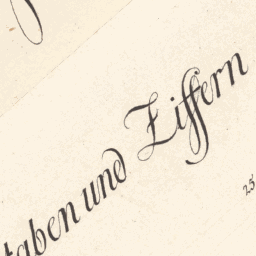 taben und Ziffern
25